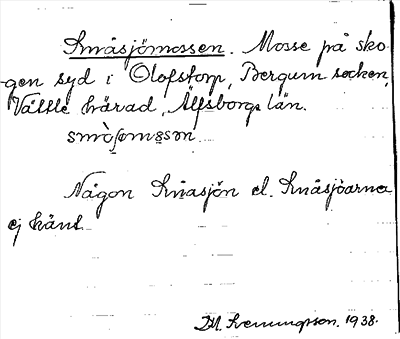 Småsjömossen. Mosse på sko-
gen syd i Olofstorp, Bergum socken,
Vättle härad, Älfsborgs län.
Någon Småsjön el. Småsjöarna
ej känt.
1938.